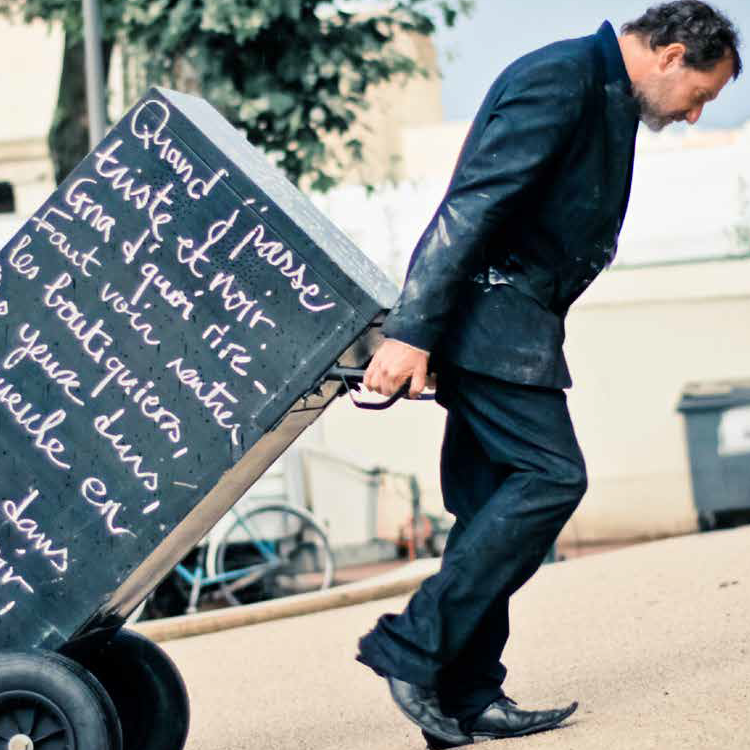 Quand j'passe
triste et noir.
Gna d'quoi rire -
Faut voir rentrer
les boutiquiers,
yeux durs,
gueule en
dans